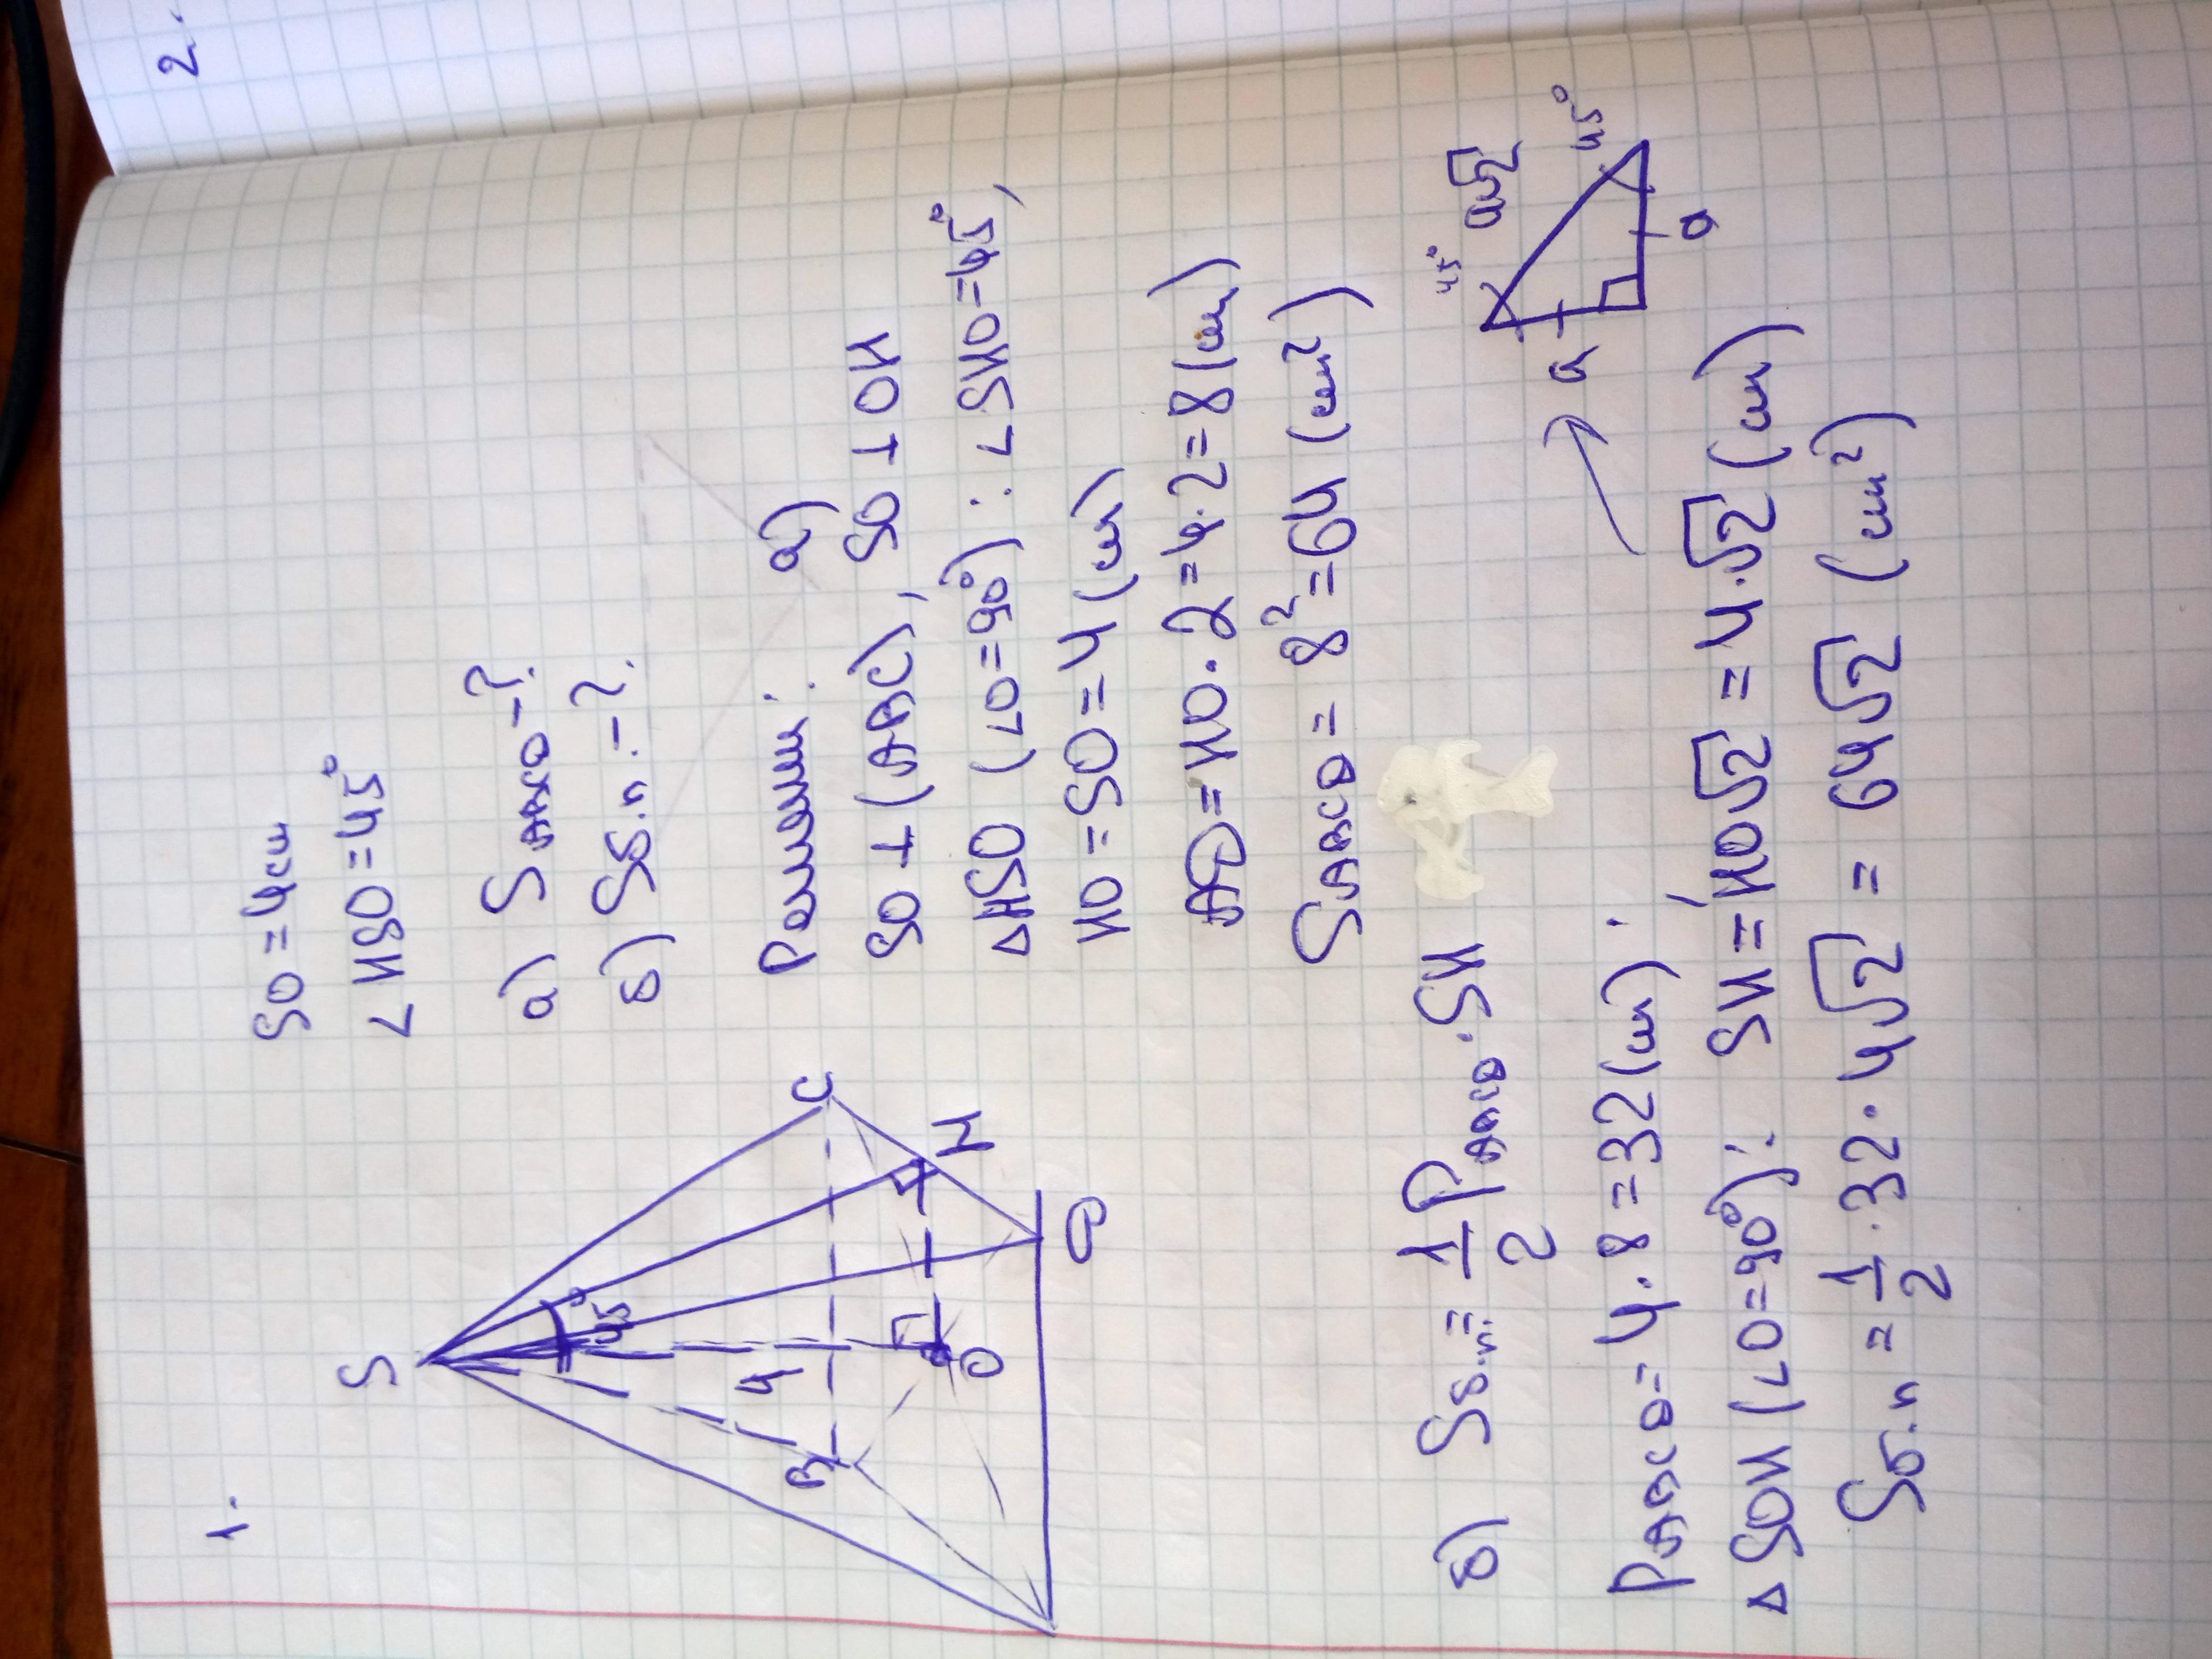 2.
1.
SO = 4см
∠HSO = 45°
а) SABCD - ?
б) Sб.п. - ?
S
45°
4
B
C
H
O
D
Решение:
а)
SO ⊥ (ABC), SO ⊥ HO
△HSO (∠O = 90°) : ∠SHO = 45°,
HO = SO = 4 (см)
AD = HO · 2 = 4 · 2 = 8 (см)
SABCD = 8² = 64 (см²)
б) Sб.п. = 1/2 PABCD · SH
PABCD = 4 · 8 = 32 (см).
△SOH (∠O = 90°): SH = HO√2 = 4 · √2 (см)
Sб.п = 1/2 · 32 · 4√2 = 64√2 (см²)
45°
a√2
45°
a
a